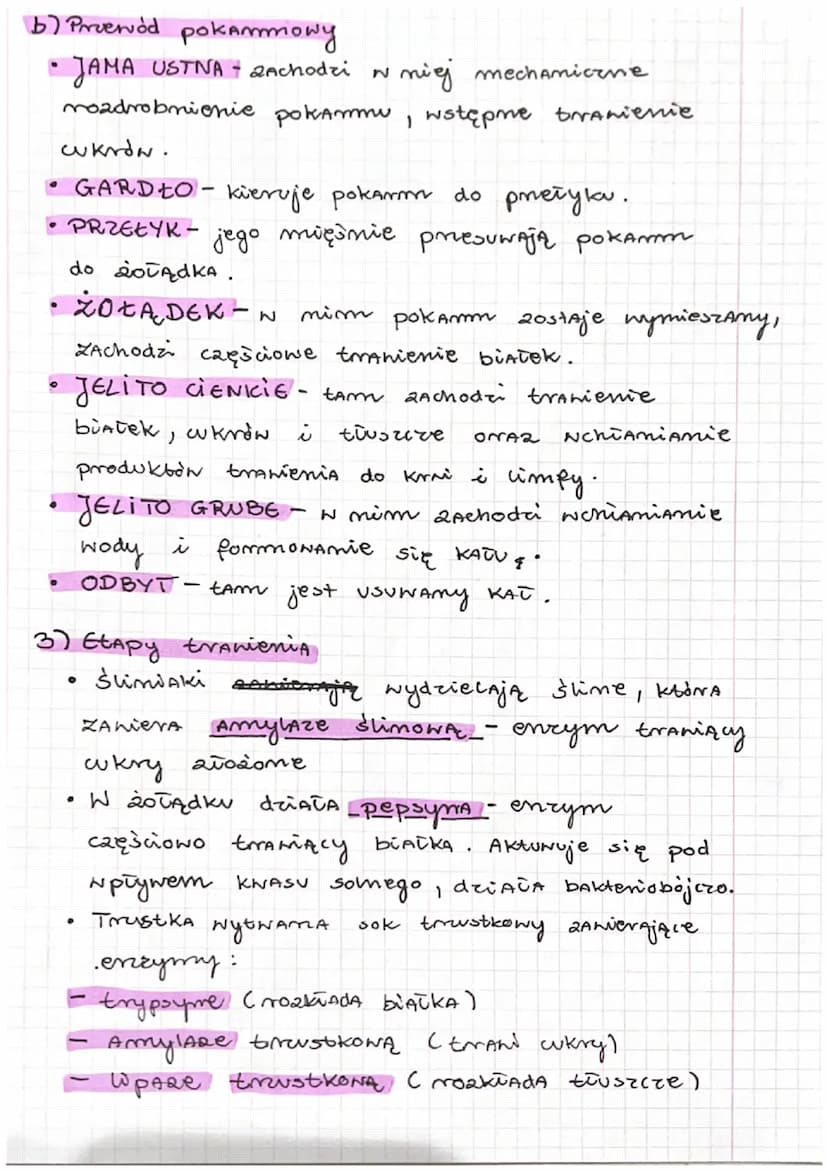 b) Przewód pokarmowy
• JAMA USTNA - zachodzi w niej mechaniczne
rozdrobnienie pokarmu, wstępne trawienie
cukrów.
• GARDŁO - kieruje pokarm do przełyku.
• PRZEŁYK - jego mięśnie przesuwają pokarm
do żołądka.
• ŻOŁĄDEK - w nim pokarm zostaje wymieszany,
zachodzi częściowe trawienie białek.
• JELITO CIENKIE - tam zachodzi trawienie
białek, cukrów i tłuszcze oraz wchłanianie
produktów trawienia do krwi i limfy.
• JELITO GRUBE - w nim zachodzi wchłanianie
wody i formowanie się kału.
• ODBYT - tam jest usuwany kał.
3) Etapy trawienia
• Ślinianki zawierają wydzielają śline, która
zawiera amylaze ślinową - enzym trawiący
cukry złożone
• W żołądku działa pepsyna - enzym
częściowo trawiący białka. Aktywuje się pod
wpływem kwasu solnego, działa bakteriobójczo.
• Trzustka wytwarza sok trzustkowy zawierające
enzymy:
- trypsyne (rozkłada białka)
- Amylaze trzustkową (trawi cukry)
- lipaze trzustkową (rozkłada tłuszcze)